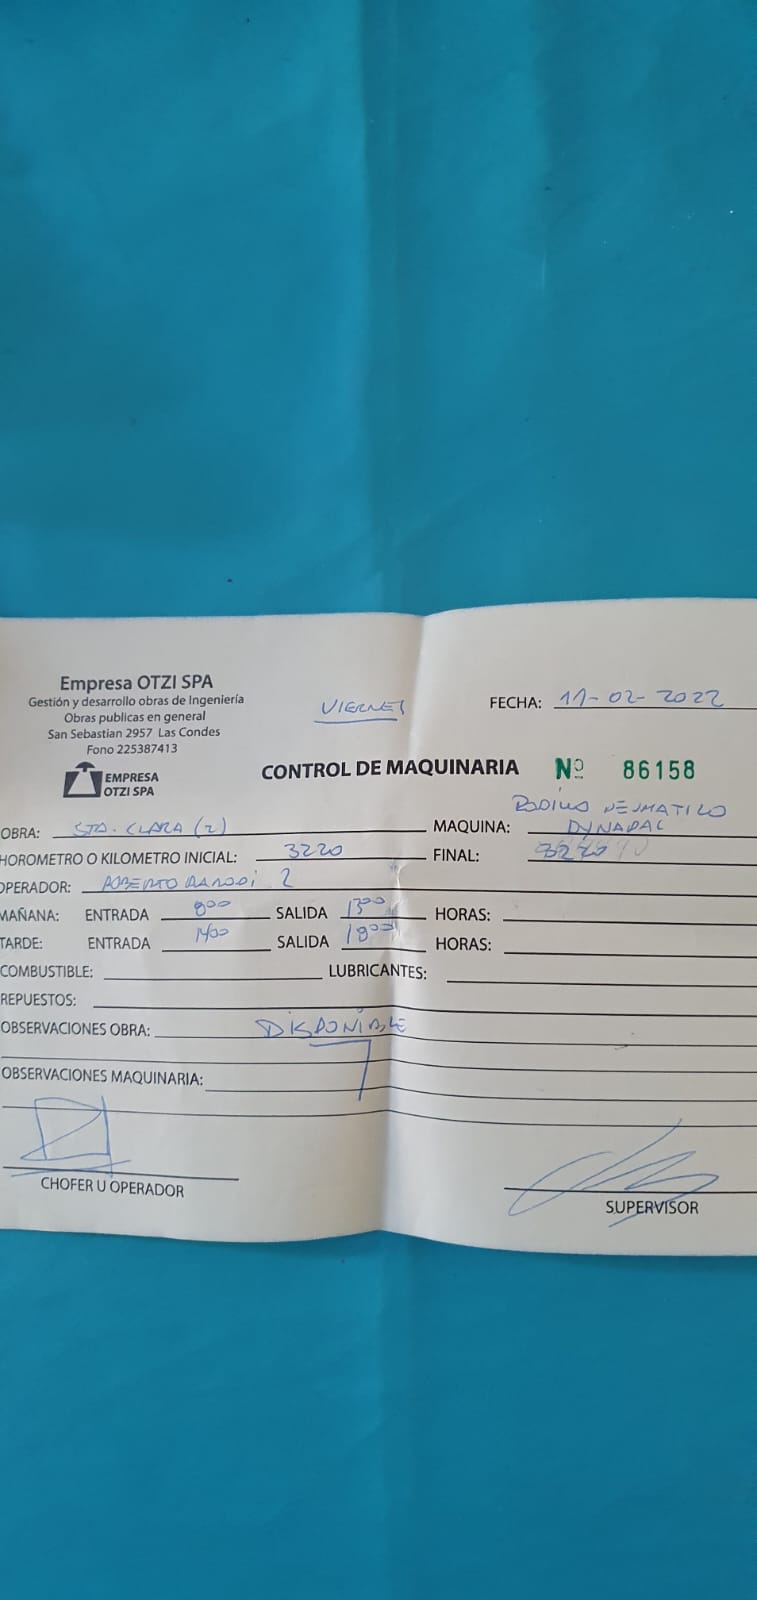 Empresa OTZI SPA
Gestión y desarrollo obras de Ingeniería
Obras publicas en general
San Sebastian 2957 Las Condes
Fono 225387413
EMPRESA
OTZI SPA
VIERNES
FECHA: 11-02-2022
CONTROL DE MAQUINARIA Nº 86158
RODILLO NEUMATICO
OBRA: STA. CLARA (2) MAQUINA: DYNAPAC
HOROMETRO O KILOMETRO INICIAL: 3220 FINAL:
OPERADOR: ROBERTO
MAÑANA: ENTRADA 800 SALIDA 1300 HORAS:
TARDE: ENTRADA 1400 SALIDA 1800 HORAS:
COMBUSTIBLE: LUBRICANTES:
REPUESTOS:
OBSERVACIONES OBRA: DISPONIBLE
OBSERVACIONES MAQUINARIA:
CHOFER U OPERADOR
SUPERVISOR